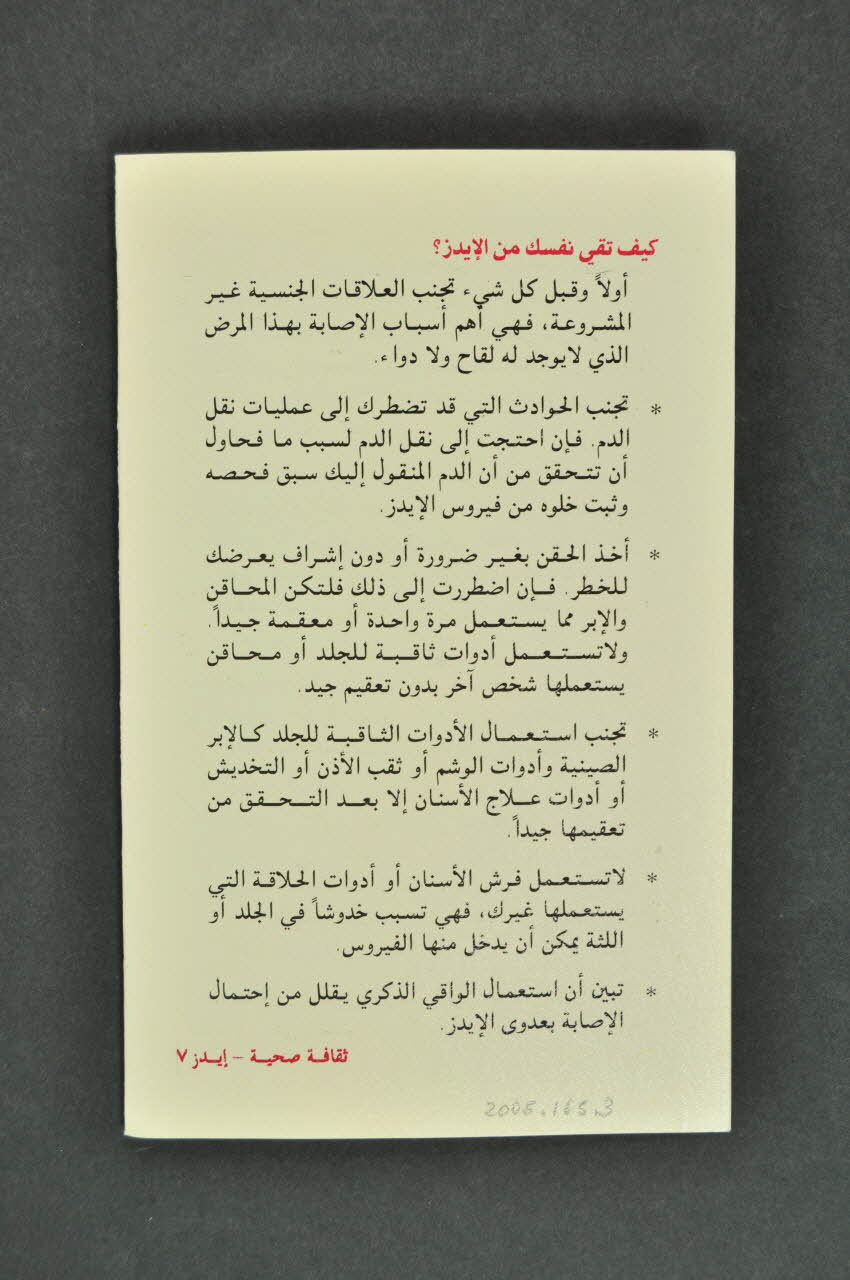 كيف تقي نفسك من الإيدز؟
أولاً وقبل كل شيء تجنب العلاقات الجنسية غير
المشروعة، فهي أهم أسباب الإصابة بهذا المرض
الذي لايوجد له لقاح ولا دواء.
* تجنب الحوادث التي قد تضطرك إلى عمليات نقل
الدم. فإن احتجت إلى نقل الدم لسبب ما فحاول
أن تتحقق من أن الدم المنقول إليك سبق فحصه
وثبت خلوه من فيروس الإيدز.
* أخذ الحقن بغير ضرورة أو دون إشراف يعرضك
للخطر. فإن اضطررت إلى ذلك فلتكن المحاقن
والإبر مما يستعمل مرة واحدة أو معقمة جيداً.
ولاتستعمل أدوات ثاقبة للجلد أو محاقن
يستعملها شخص آخر بدون تعقيم جيد.
* تجنب استعمال الأدوات الثاقبة للجلد كالإبر
الصينية وأدوات الوشم أو ثقب الأذن أو التخديش
أو أدوات علاج الأسنان إلا بعد التحقق من
تعقيمها جيداً.
* لاتستعمل فرش الأسنان أو أدوات الحلاقة التي
يستعملها غيرك، فهي تسبب خدوشاً في الجلد أو
اللثة يمكن أن يدخل منها الفيروس.
* تبين أن استعمال الواقي الذكري يقلل من إحتمال
الإصابة بعدوى الإيدز.
ثقافة صحية – إيدز ٧
2006.165.3